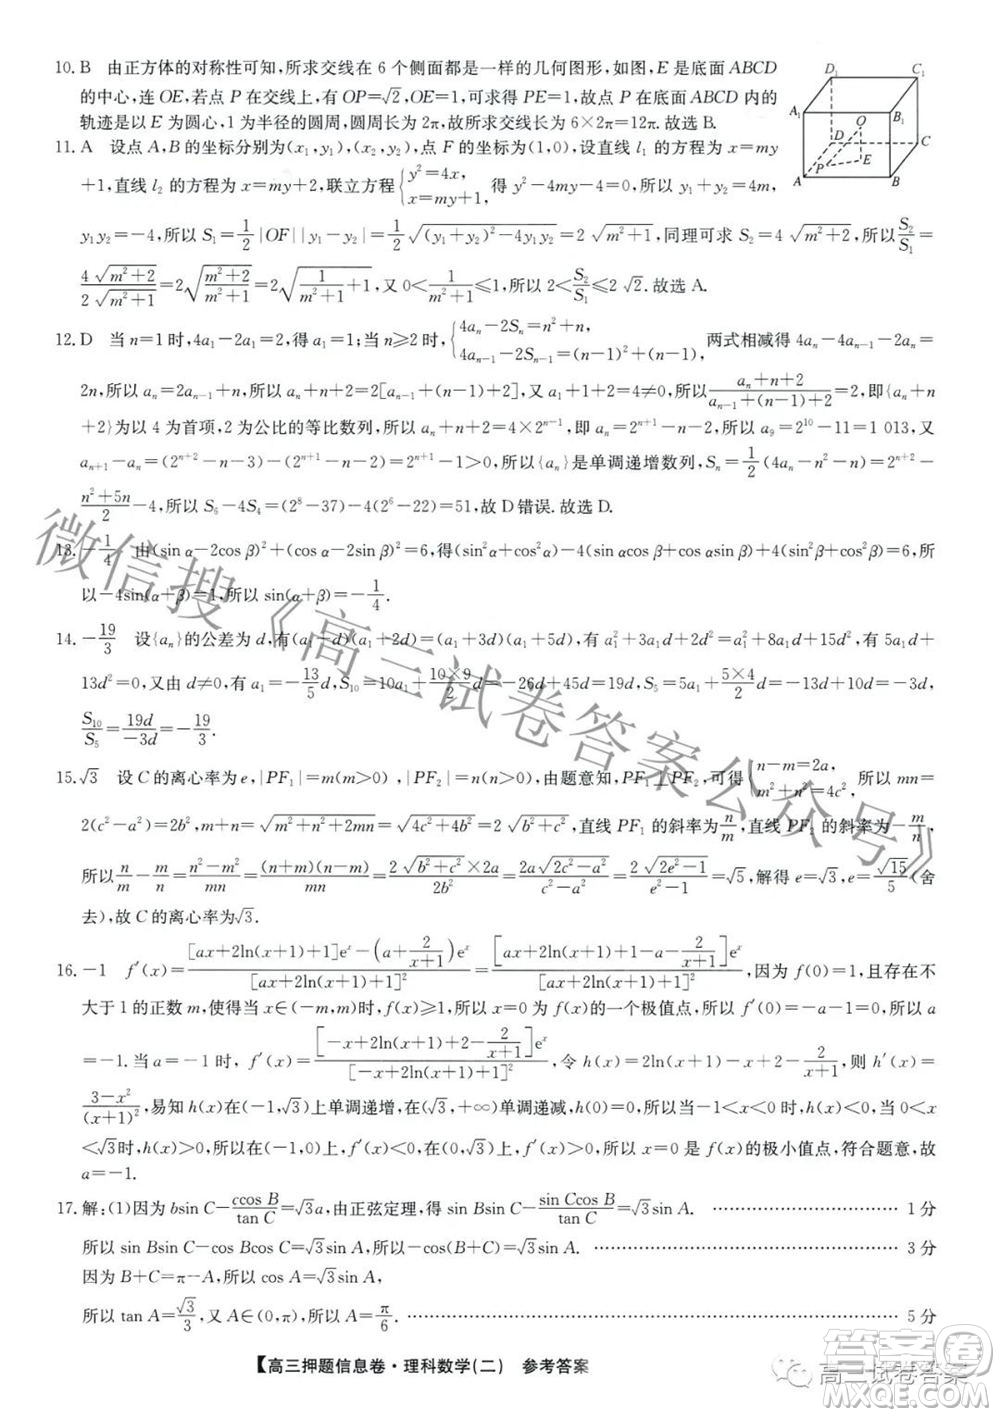 10. B　由正方体的对称性可知,所求交线在 6 个侧面都是一样的几何图形,如图,E 是底面 ABCD
的中心,连 OE,若点 P 在交线上,有 OP=√2,OE=1,可求得 PE=1,故点 P 在底面 ABCD 内的
轨迹是以 E 为圆心,1 为半径的圆周,圆周长为 2π,故所求交线长为 6×2π=12π.故选 B.
D₁ C₁ A₁ B₁ O D C P E A B
11. A　设点 A,B 的坐标分别为(x₁,y₁),(x₂,y₂),点 F 的坐标为(1,0),设直线 l₁ 的方程为 x=my
+1,直线 l₂ 的方程为 x=my+2,联立方程{y²=4x, x=my+1, 得 y²-4my-4=0,所以 y₁+y₂=4m,
y₁y₂=-4,所以 S₁=1/2|OF||y₁-y₂|=1/2√((y₁+y₂)²-4y₁y₂)=2√(m²+1),同理可求 S₂=4√(m²+2),所以 S₂/S₁=
4√(m²+2)/2√(m²+1)=2√((m²+2)/(m²+1))=2√(1/(m²+1)+1),又 0<1/(m²+1)≤1,所以 2<S₂/S₁≤2√2.故选 A.
12. D　当 n=1 时,4a₁-2a₁=2,得 a₁=1;当 n≥2 时,{4aₙ-2Sₙ=n²+n, 4aₙ₋₁-2Sₙ₋₁=(n-1)²+(n-1), 两式相减得 4aₙ-4aₙ₋₁-2aₙ=
2n,所以 aₙ=2aₙ₋₁+n,所以 aₙ+n+2=2[aₙ₋₁+(n-1)+2],又 a₁+1+2=4≠0,所以(aₙ+n+2)/(aₙ₋₁+(n-1)+2)=2,即{aₙ+n
+2}为以 4 为首项,2 为公比的等比数列,所以 aₙ+n+2=4×2ⁿ⁻¹,即 aₙ=2ⁿ⁺¹-n-2,所以 a₉=2¹⁰-11=1 013,又
aₙ₊₁-aₙ=(2ⁿ⁺²-n-3)-(2ⁿ⁺¹-n-2)=2ⁿ⁺¹-1>0,所以{aₙ}是单调递增数列,Sₙ=1/2(4aₙ-n²-n)=2ⁿ⁺²-
(n²+5n)/2-4,所以 S₆-4S₄=(2⁸-37)-4(2⁶-22)=51,故 D 错误.故选 D.
13. -1/4　由(sin α-2cos β)²+(cos α-2sin β)²=6,得(sin²α+cos²α)-4(sin αcos β+cos αsin β)+4(sin²β+cos²β)=6,所
以-4sin(α+β)=1,所以 sin(α+β)=-1/4.
14. -19/3　设{aₙ}的公差为 d,有(a₁-d)(a₁+2d)=(a₁+3d)(a₁+5d),有 a₁²+3a₁d+2d²=a₁²+8a₁d+15d²,有 5a₁d+
13d²=0,又由 d≠0,有 a₁=-13/5 d,S₁₀=10a₁+(10×9)/2 d=-26d+45d=19d,S₅=5a₁+(5×4)/2 d=-13d+10d=-3d,
S₁₀/S₅=19d/-3d=-19/3.
15. √3　设 C 的离心率为 e,|PF₁|=m(m>0),|PF₂|=n(n>0),由题意知,PF₁⊥PF₂,可得{n-m=2a, m²+n²=4c², 所以 mn=
2(c²-a²)=2b²,m+n=√(m²+n²+2mn)=√(4c²+4b²)=2√(b²+c²),直线 PF₁ 的斜率为 n/m,直线 PF₂ 的斜率为-m/n,
所以 n/m-m/n=(n²-m²)/mn=(m+n)(n-m)/mn=(2√(b²+c²)×2a)/2b²=2a√(2c²-a²)/(c²-a²)=2√(2e²-1)/(e²-1)=√5,解得 e=√3,e=√15/5(舍
去),故 C 的离心率为√3.
16. -1　f′(x)=([ax+2ln(x+1)+1]eˣ-(a+2/(x+1))eˣ)/[ax+2ln(x+1)+1]²=([ax+2ln(x+1)+1-a-2/(x+1)]eˣ)/[ax+2ln(x+1)+1]²,因为 f(0)=1,且存在不
大于 1 的正数 m,使得当 x∈(-m,m)时,f(x)≥1,所以 x=0 为 f(x)的一个极值点,所以 f′(0)=-a-1=0,所以 a
=-1.当 a=-1 时,f′(x)=([-x+2ln(x+1)+2-2/(x+1)]eˣ)/[-x+2ln(x+1)+1]²,令 h(x)=2ln(x+1)-x+2-2/(x+1),则 h′(x)=
(3-x²)/(x+1)²,易知 h(x)在(-1,√3)上单调递增,在(√3,+∞)单调递减,h(0)=0,所以当-1<x<0 时,h(x)<0,当 0<
x<√3时,h(x)>0,所以在(-1,0)上,f′(x)<0,在(0,√3)上,f′(x)>0,所以 x=0 是 f(x)的极小值点,符合题意,故
a=-1.
17. 解:(1)因为 bsin C-(ccos B)/(tan C)=√3a,由正弦定理,得 sin Bsin C-(sin Ccos B)/(tan C)=√3sin A. ………… 1 分
所以 sin Bsin C-cos Bcos C=√3sin A,所以-cos(B+C)=√3sin A. ………… 3 分
因为 B+C=π-A,所以 cos A=√3sin A,
所以 tan A=√3/3,又 A∈(0,π),所以 A=π/6. ………… 5 分
【高三押题信息卷·理科数学(二)　参考答案】
微信搜《高三试卷答案公众号》
高三试卷答案